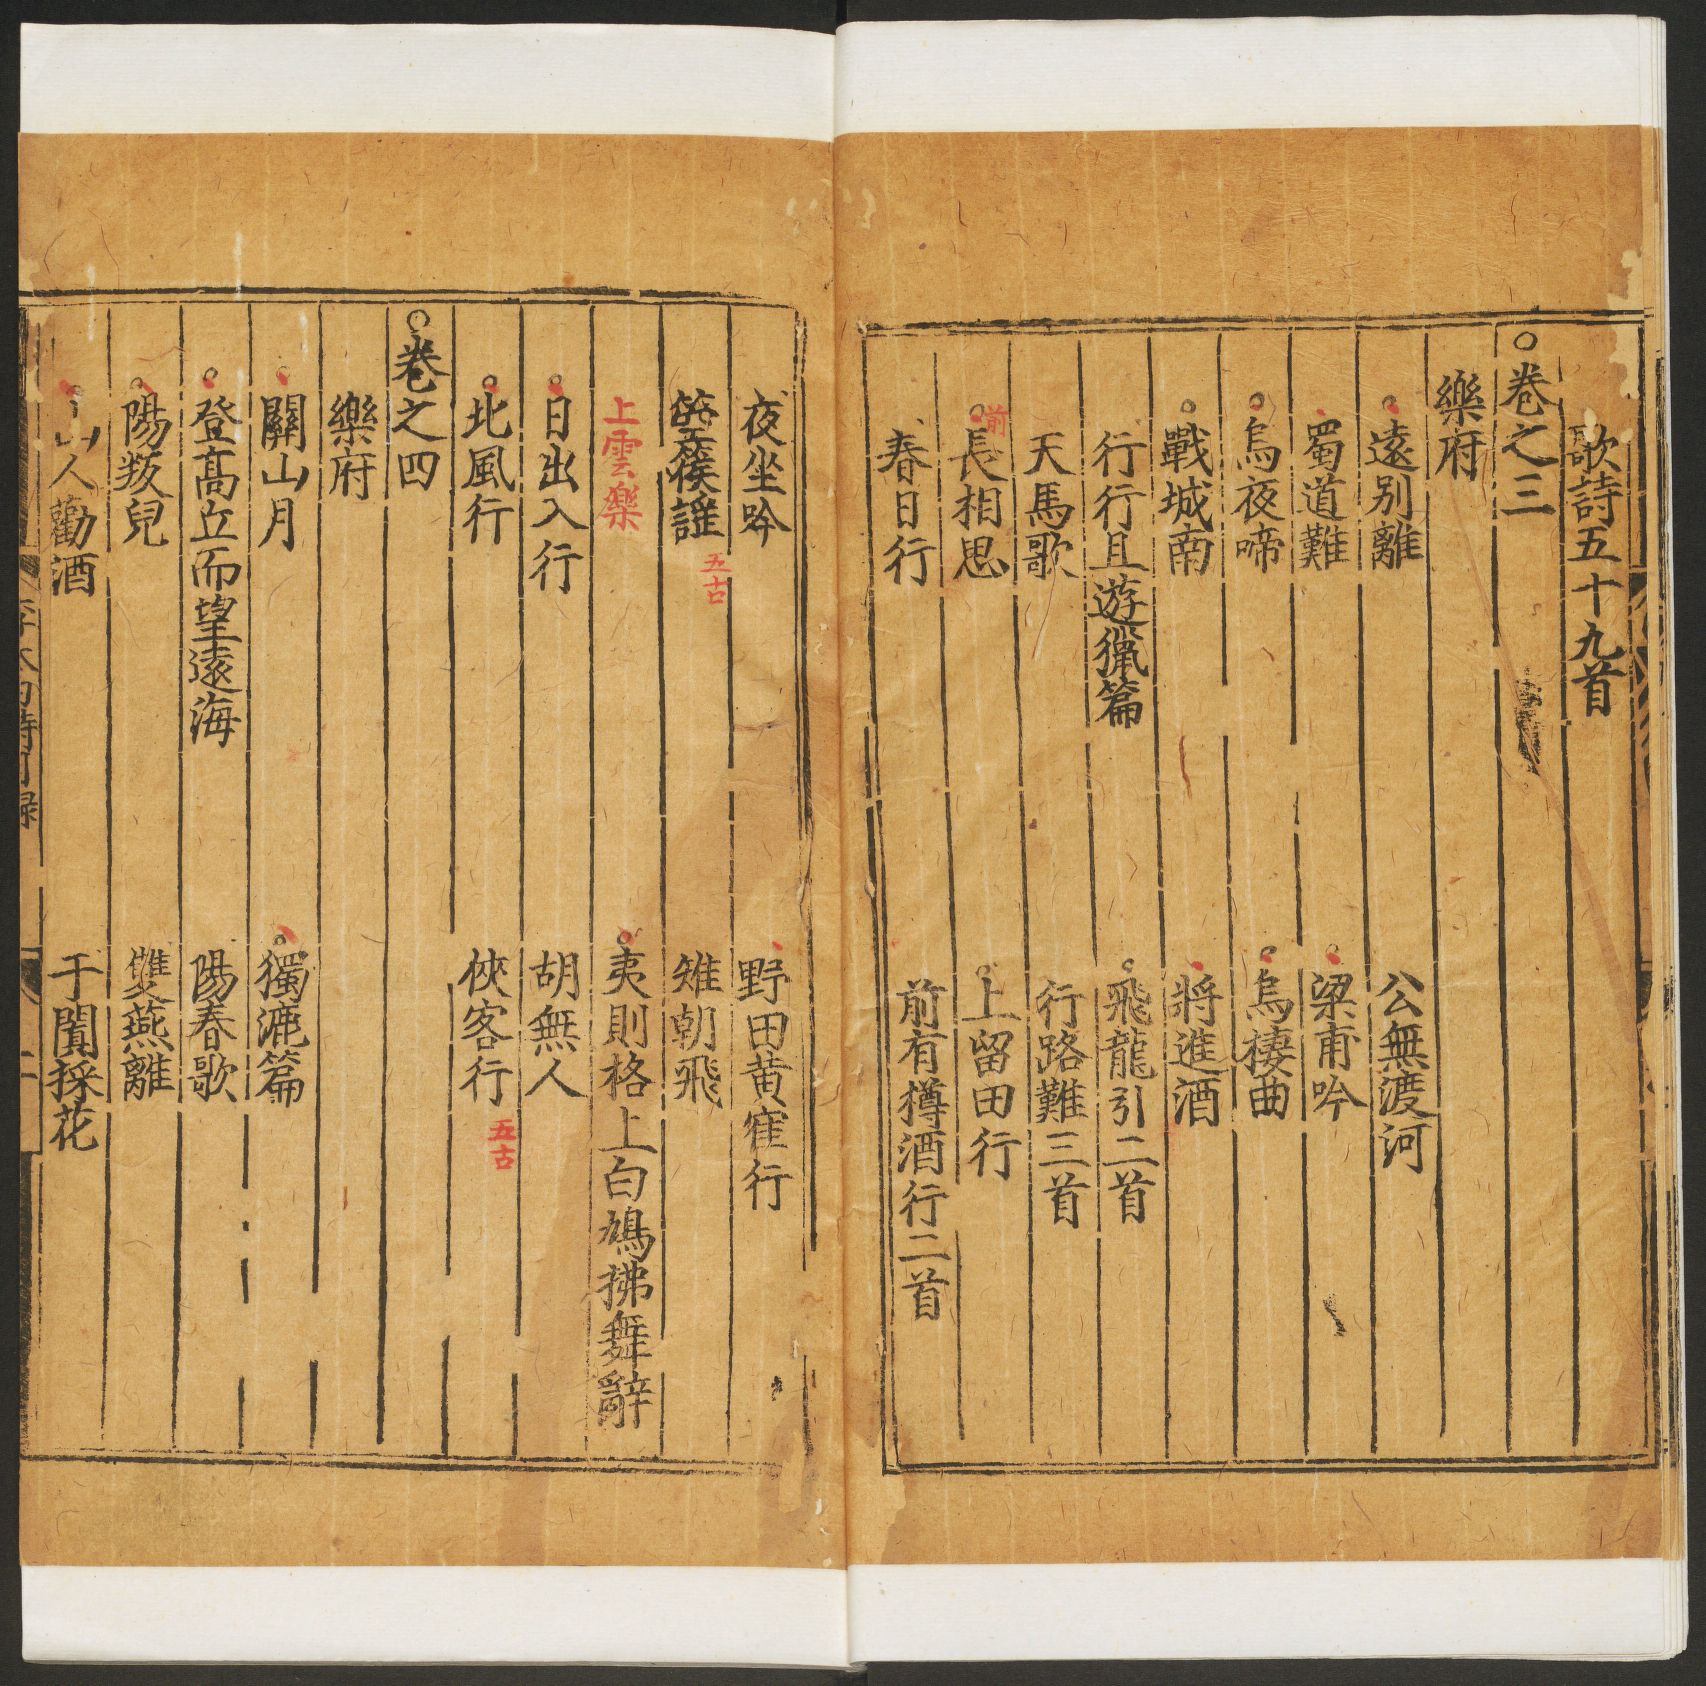 歌詩五十九首
卷之三
樂府
遠別離
公無渡河
蜀道難
梁甫吟
烏夜啼
烏棲曲
戰城南
將進酒
行行且遊獵篇
飛龍引二首
天馬歌
行路難三首
前
長相思
上留田行
春日行
前有樽酒行二首
夜坐吟
野田黄雀行
箜篌謠
五古
雉朝飛
上雲樂
夷則格上白鳩拂舞辭
日出入行
胡無人
北風行
俠客行
五古
卷之四
樂府
關山月
獨漉篇
登高丘而望遠海
陽春歌
陽叛兒
雙燕離
山人勸酒
于闐採花